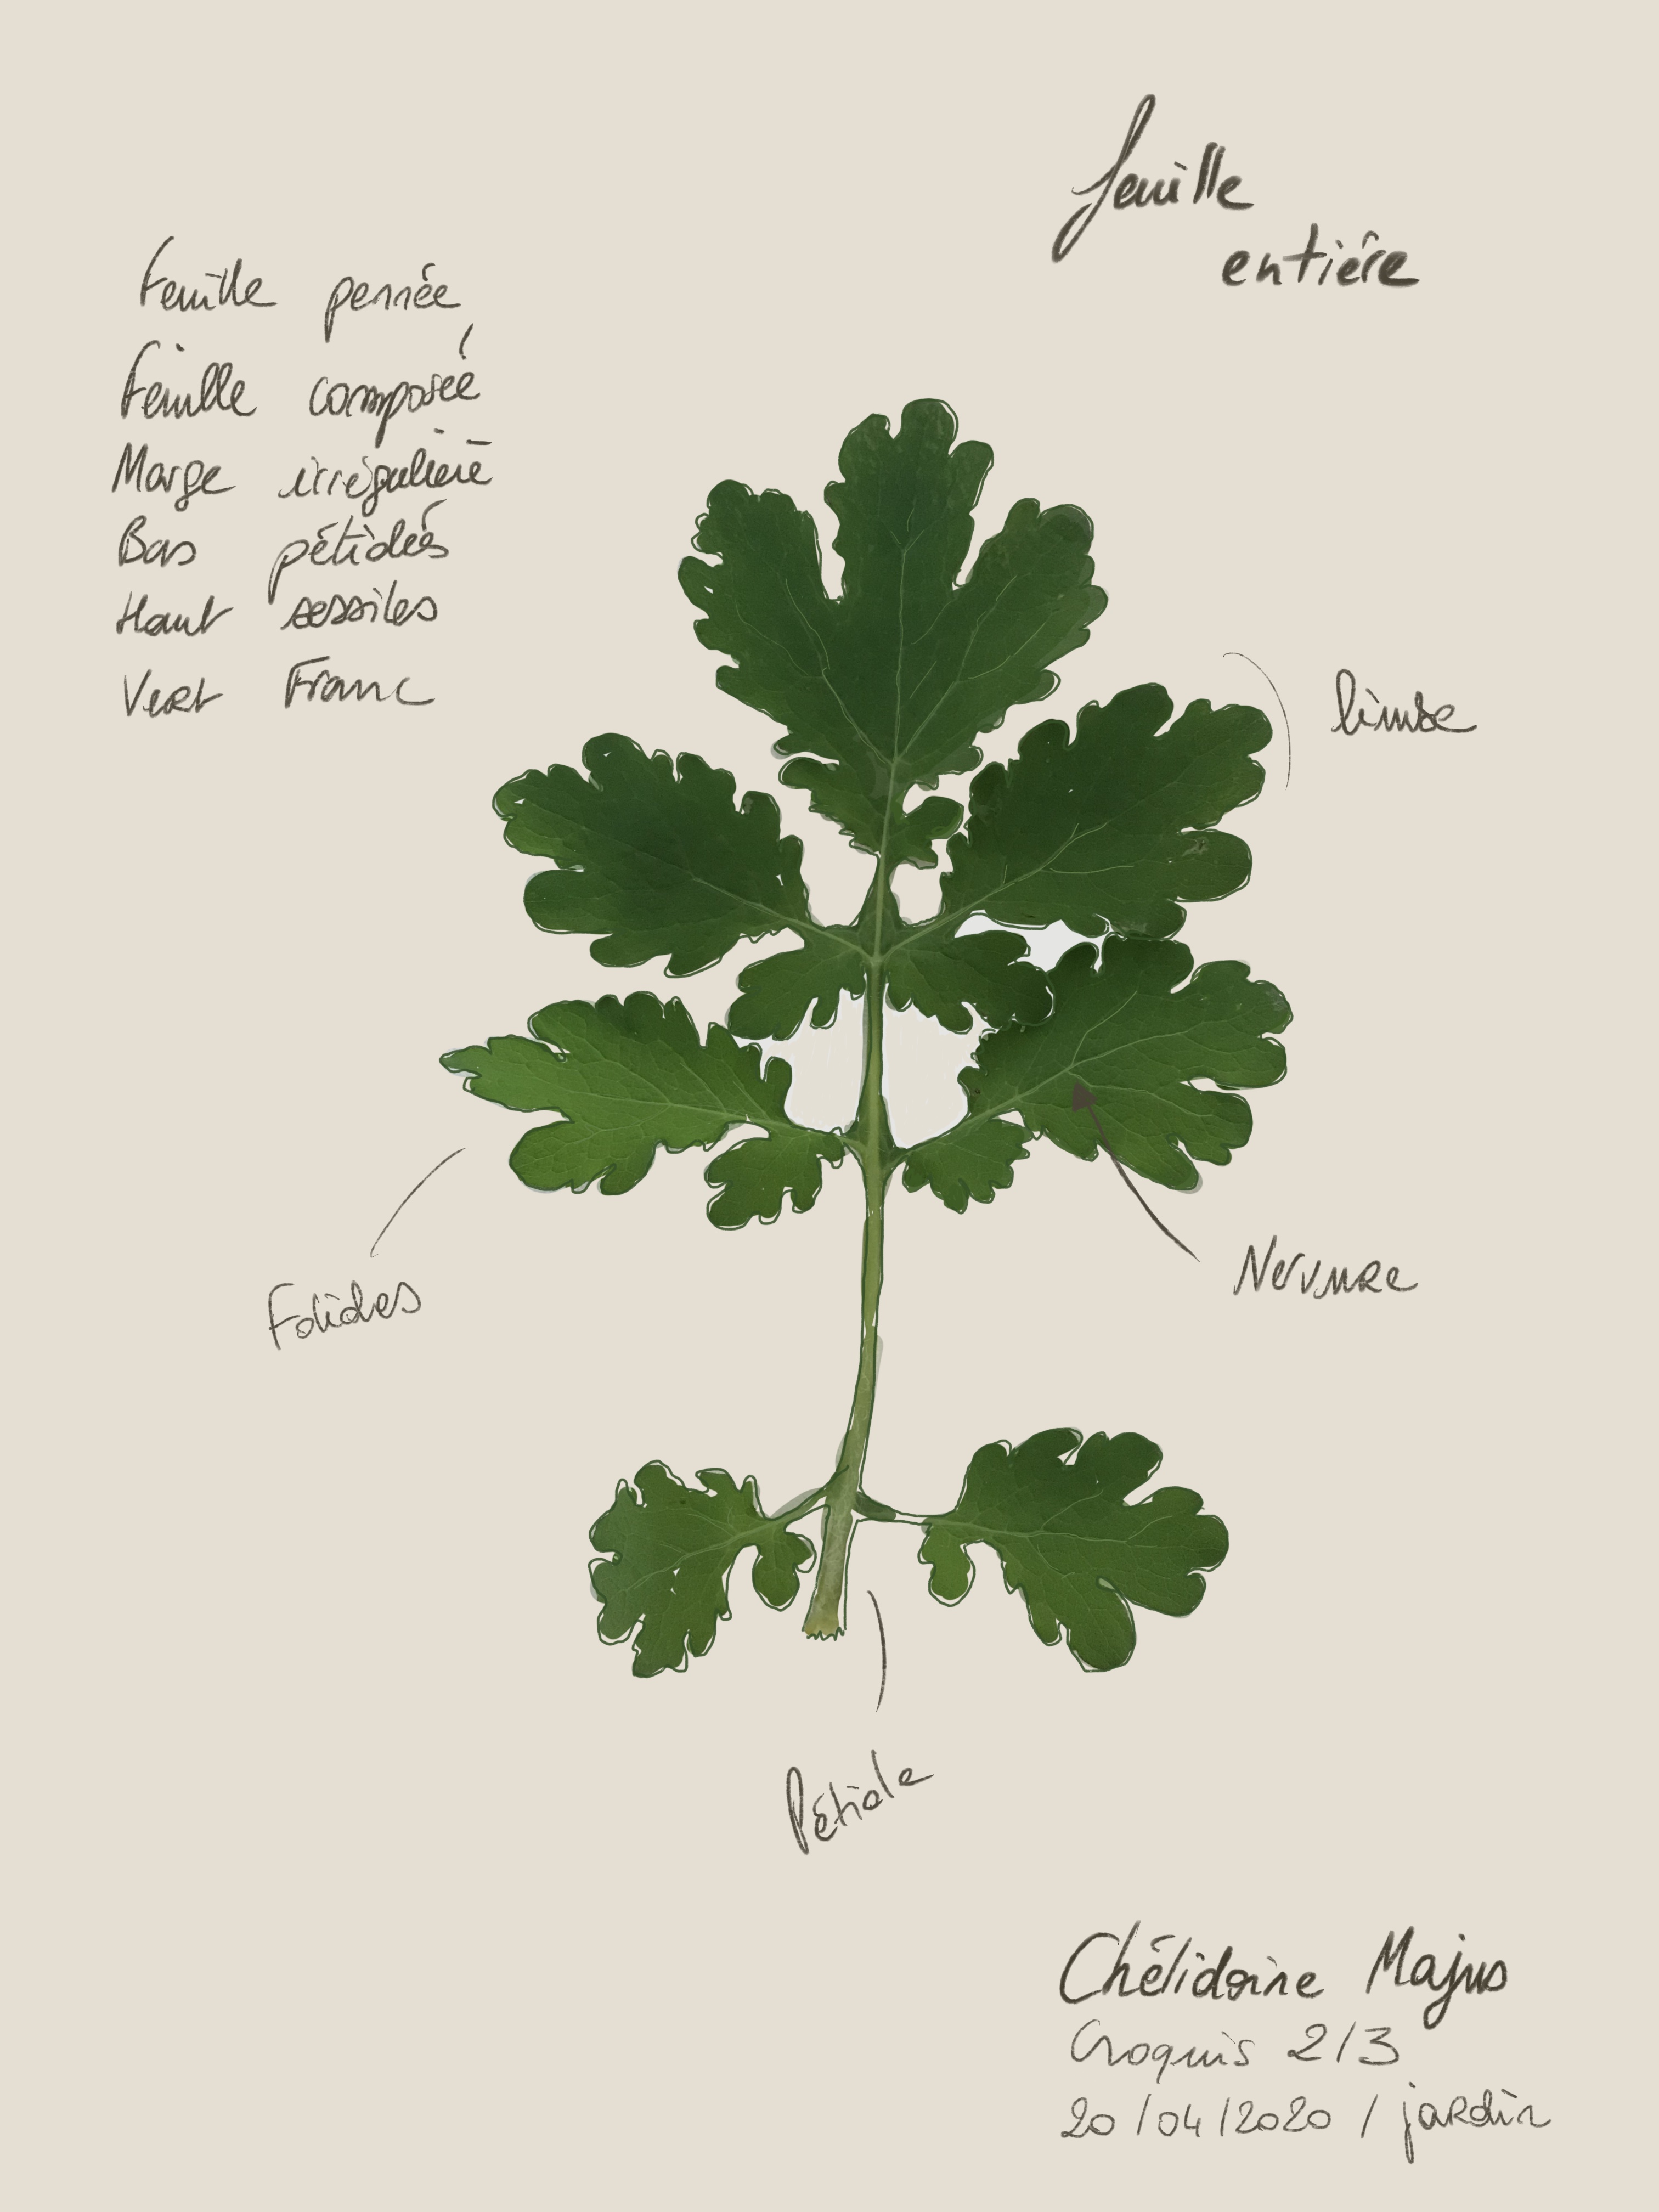 feuille
entière
Feuille pennée
Feuille composée
Marge irrégulière
Bas pétiolés
Haut sessiles
Vert Franc
limbe
Nervure
Folioles
Pétiole
Chélidoine Majus
Croquis 2/3
20/04/2020 / jardin